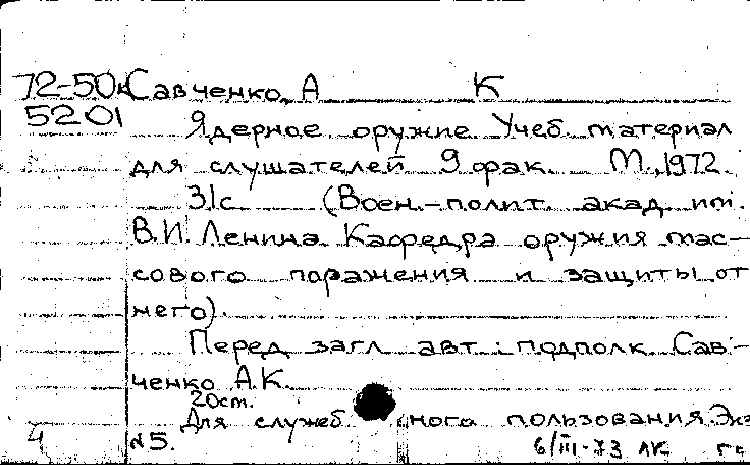 72-50к Савченко, А К
5201
Ядерное оружие Учеб. материал
для слушателей 9 фак. М., 1972.
31с (Воен.-полит. акад. им.
В.И. Ленина. Кафедра оружия мас-
сового поражения и защиты от
него).
Перед загл авт: подполк. Сав-
ченко А.К.
20ст.
Для служеб ного пользования. Экз
4 №5. 6/III-73